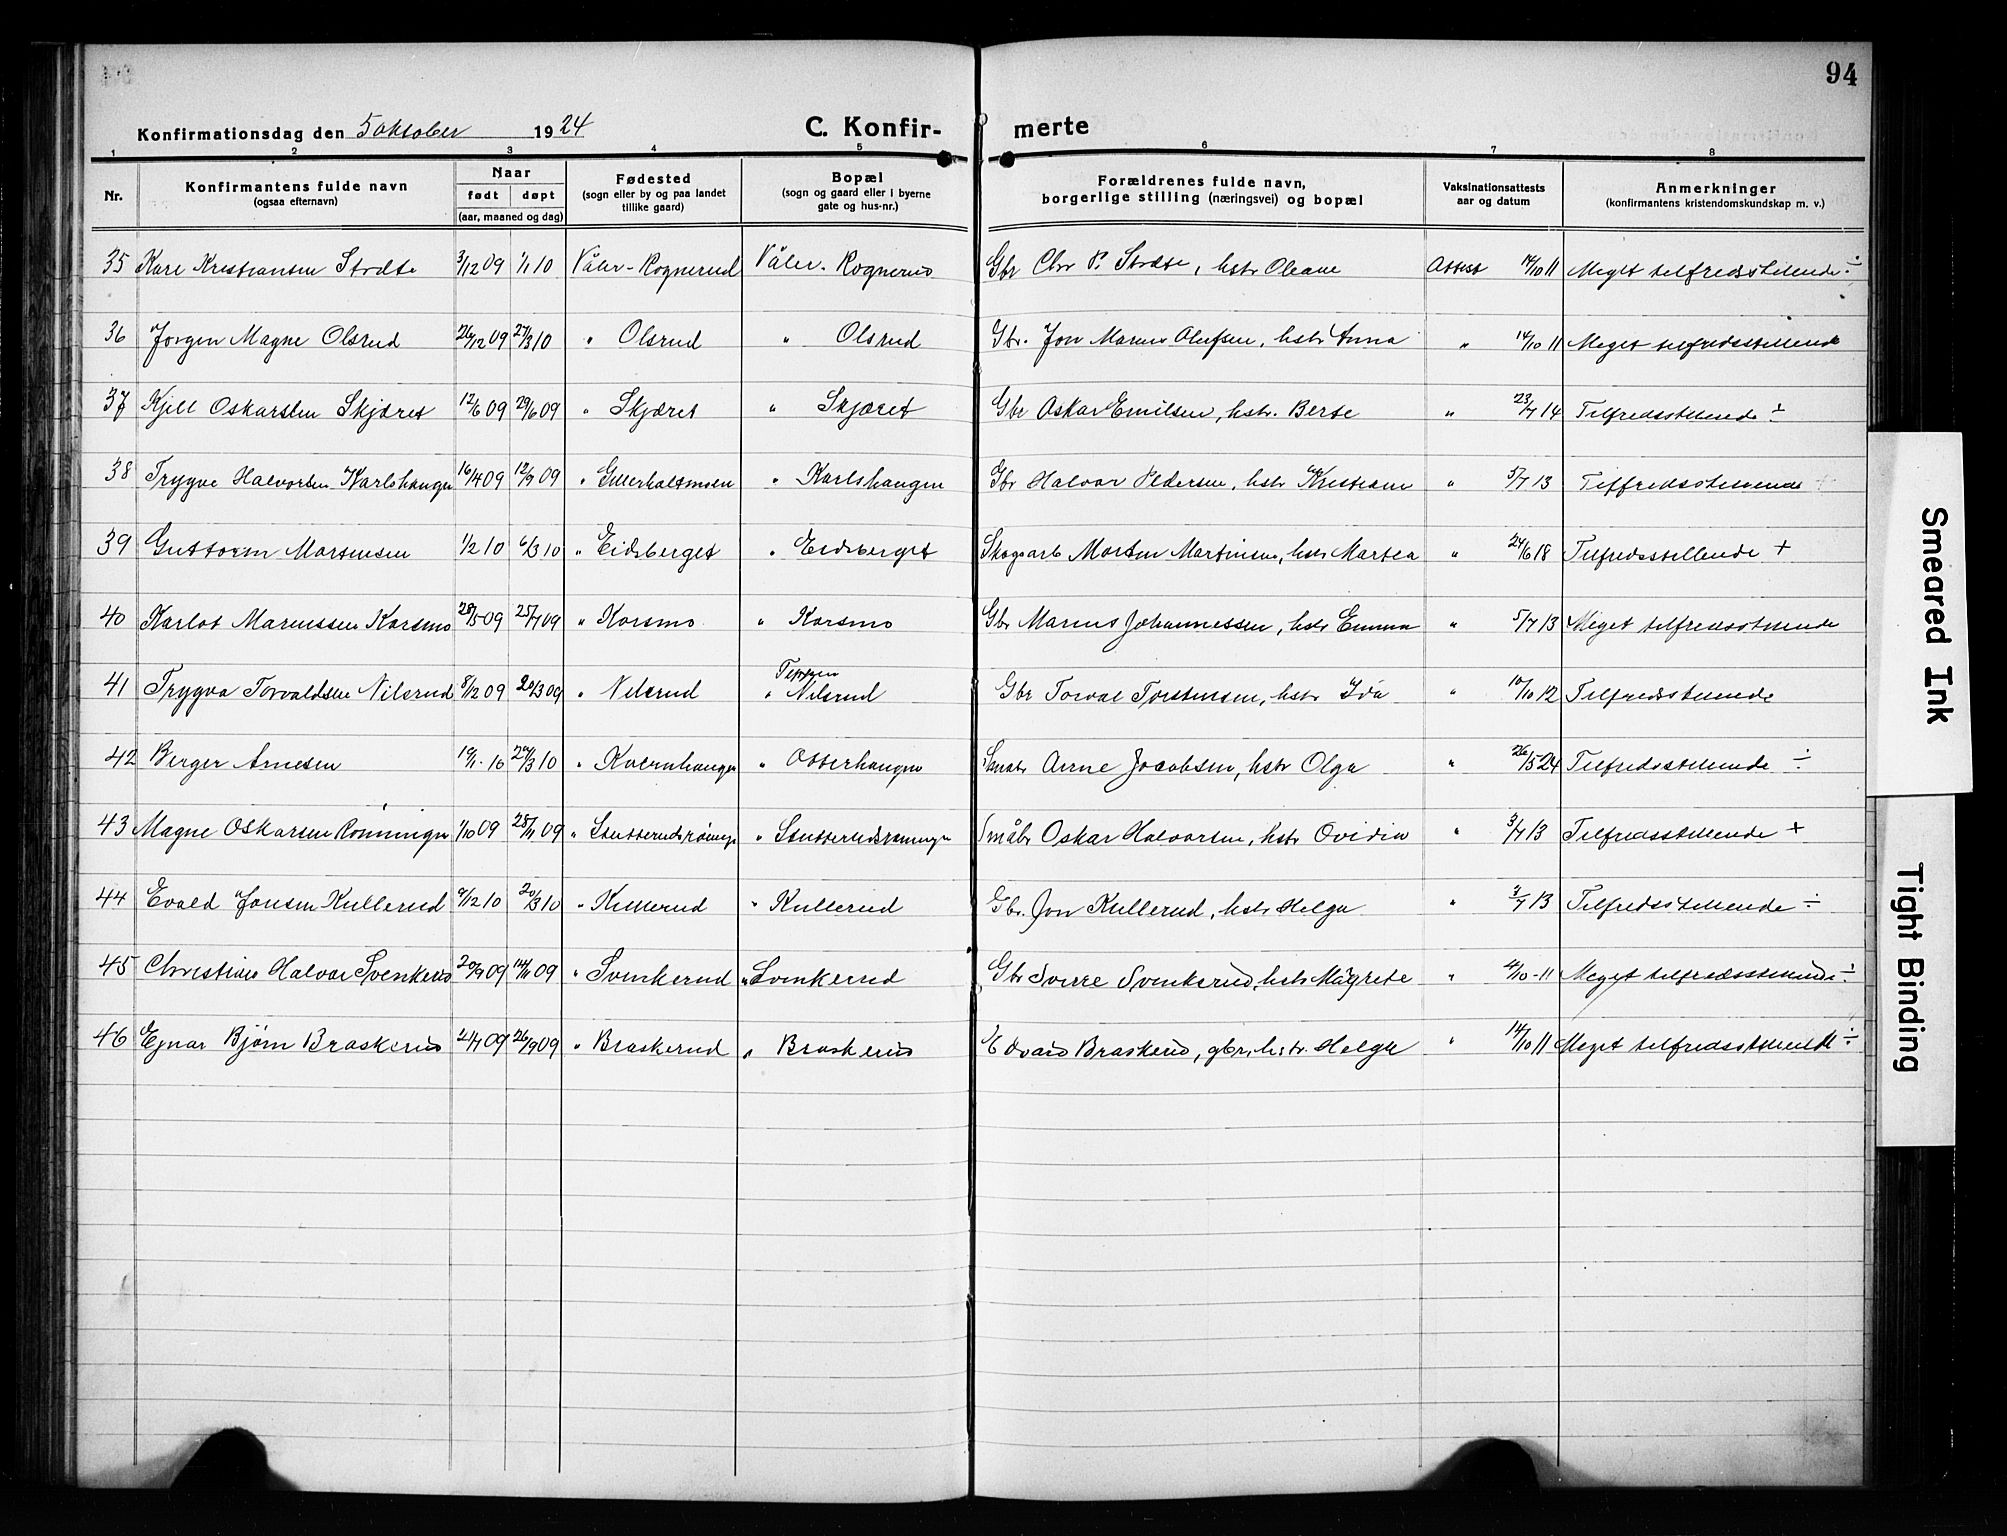 94
Konfirmationsdag den 5 oktober 1924
C. Konfir- merte
1 2 3 4 5 6 7 8
Nr. Konfirmantens fulde navn (ogsaa efternavn) Naar født døpt (aar, maaned og dag) Fødested (sogn eller by og paa landet tillike gaard) Bopæl (sogn og gaard eller i byerne gate og hus-nr.) Forældrenes fulde navn, borgerlige stilling (næringsvei) og bopæl Vaksinationsattests aar og datum Anmerkninger (konfirmantens kristendomskundskap m. v.)
35 Kare Kristiansen Stræte 3/12 09 1/1 10 Våler-Rognerud Våler-Rognerud Gbr Chr P. Stræte, hstr Oleane Attest 14/10 11 Meget tilfredsstillende ÷
36 Jørgen Magne Olsrud 26/12 09 27/3 10 " Olsrud " Olsrud Gbr. Jon Marius Olufsen, hstr Anna " 14/10 11 Meget tilfredsstillende
37 Kjell Oskarsten Skjæret 12/6 09 29/6 09 " Skjæret " Skjæret Gbr Oskar Emilsen, hstr. Berte " 23/7 14 Tilfredsstillende ÷
38 Trygve Halvorsen Karlshaugen 16/4 09 12/9 09 " " Karlshaugen Gbr Halvor Pedersen, hstr Kristiane " 3/7 13 Tilfredsstillende +
39 Guttorm Mortensen 1/2 10 6/3 10 " Eidsberget " Eidsberget Skogsarb Morten Martinsen, hstr Martea " 24/6 18 Tilfredsstillende +
40 Karlot Mariussen Korsmo 28/5 09 25/7 09 " Korsmo " Korsmo Gbr Marius Johannessen, hstr Emma " 5/7 13 Meget tilfredsstillende
41 Trygve Torvaldsen Nilsrud 8/12 09 20/3 09 " Nilsrud Teppen " Nilsrud Gbr Torval Torstensen, hstr Ida " 10/10 12 Tilfredsstillende
42 Berger Arnesen 19/1 10 20/3 10 " Kvernhaugen " Otterhaugen Småbr Arne Jacobsen, hstr Olga " 26/5 24 Tilfredsstillende ÷
43 Magne Oskarsen Rønningen 1/10 09 28/11 09 " Stutterudsrøning " Stutterudsrønningen Småbr Oskar Halvorsen, hstr Ovidia " 3/7 13 Tilfredsstillende +
44 Evald Jonsen Kullerud 9/12 10 20/3 10 " Kullerud " Kullerud Gbr. Jon Kullerud, hstr Helga " 3/7 13 Tilfredsstillende ÷
45 Christian Halvor Svenkerud 20/9 09 14/11 09 " Svenkerud " Svenkerud Gbr Sverre Svenkerud, hstr Magrete " 14/10-11 Meget tilfredsstillende ÷
46 Ejnar Bjørn Braskerud 21/7 09 26/9 09 " Braskerud " Braskerud Edvard Braskerud, gbr, hstr. Helga " 14/10 11 Meget tilfredsstillende ÷
Smeared Ink
Tight Binding